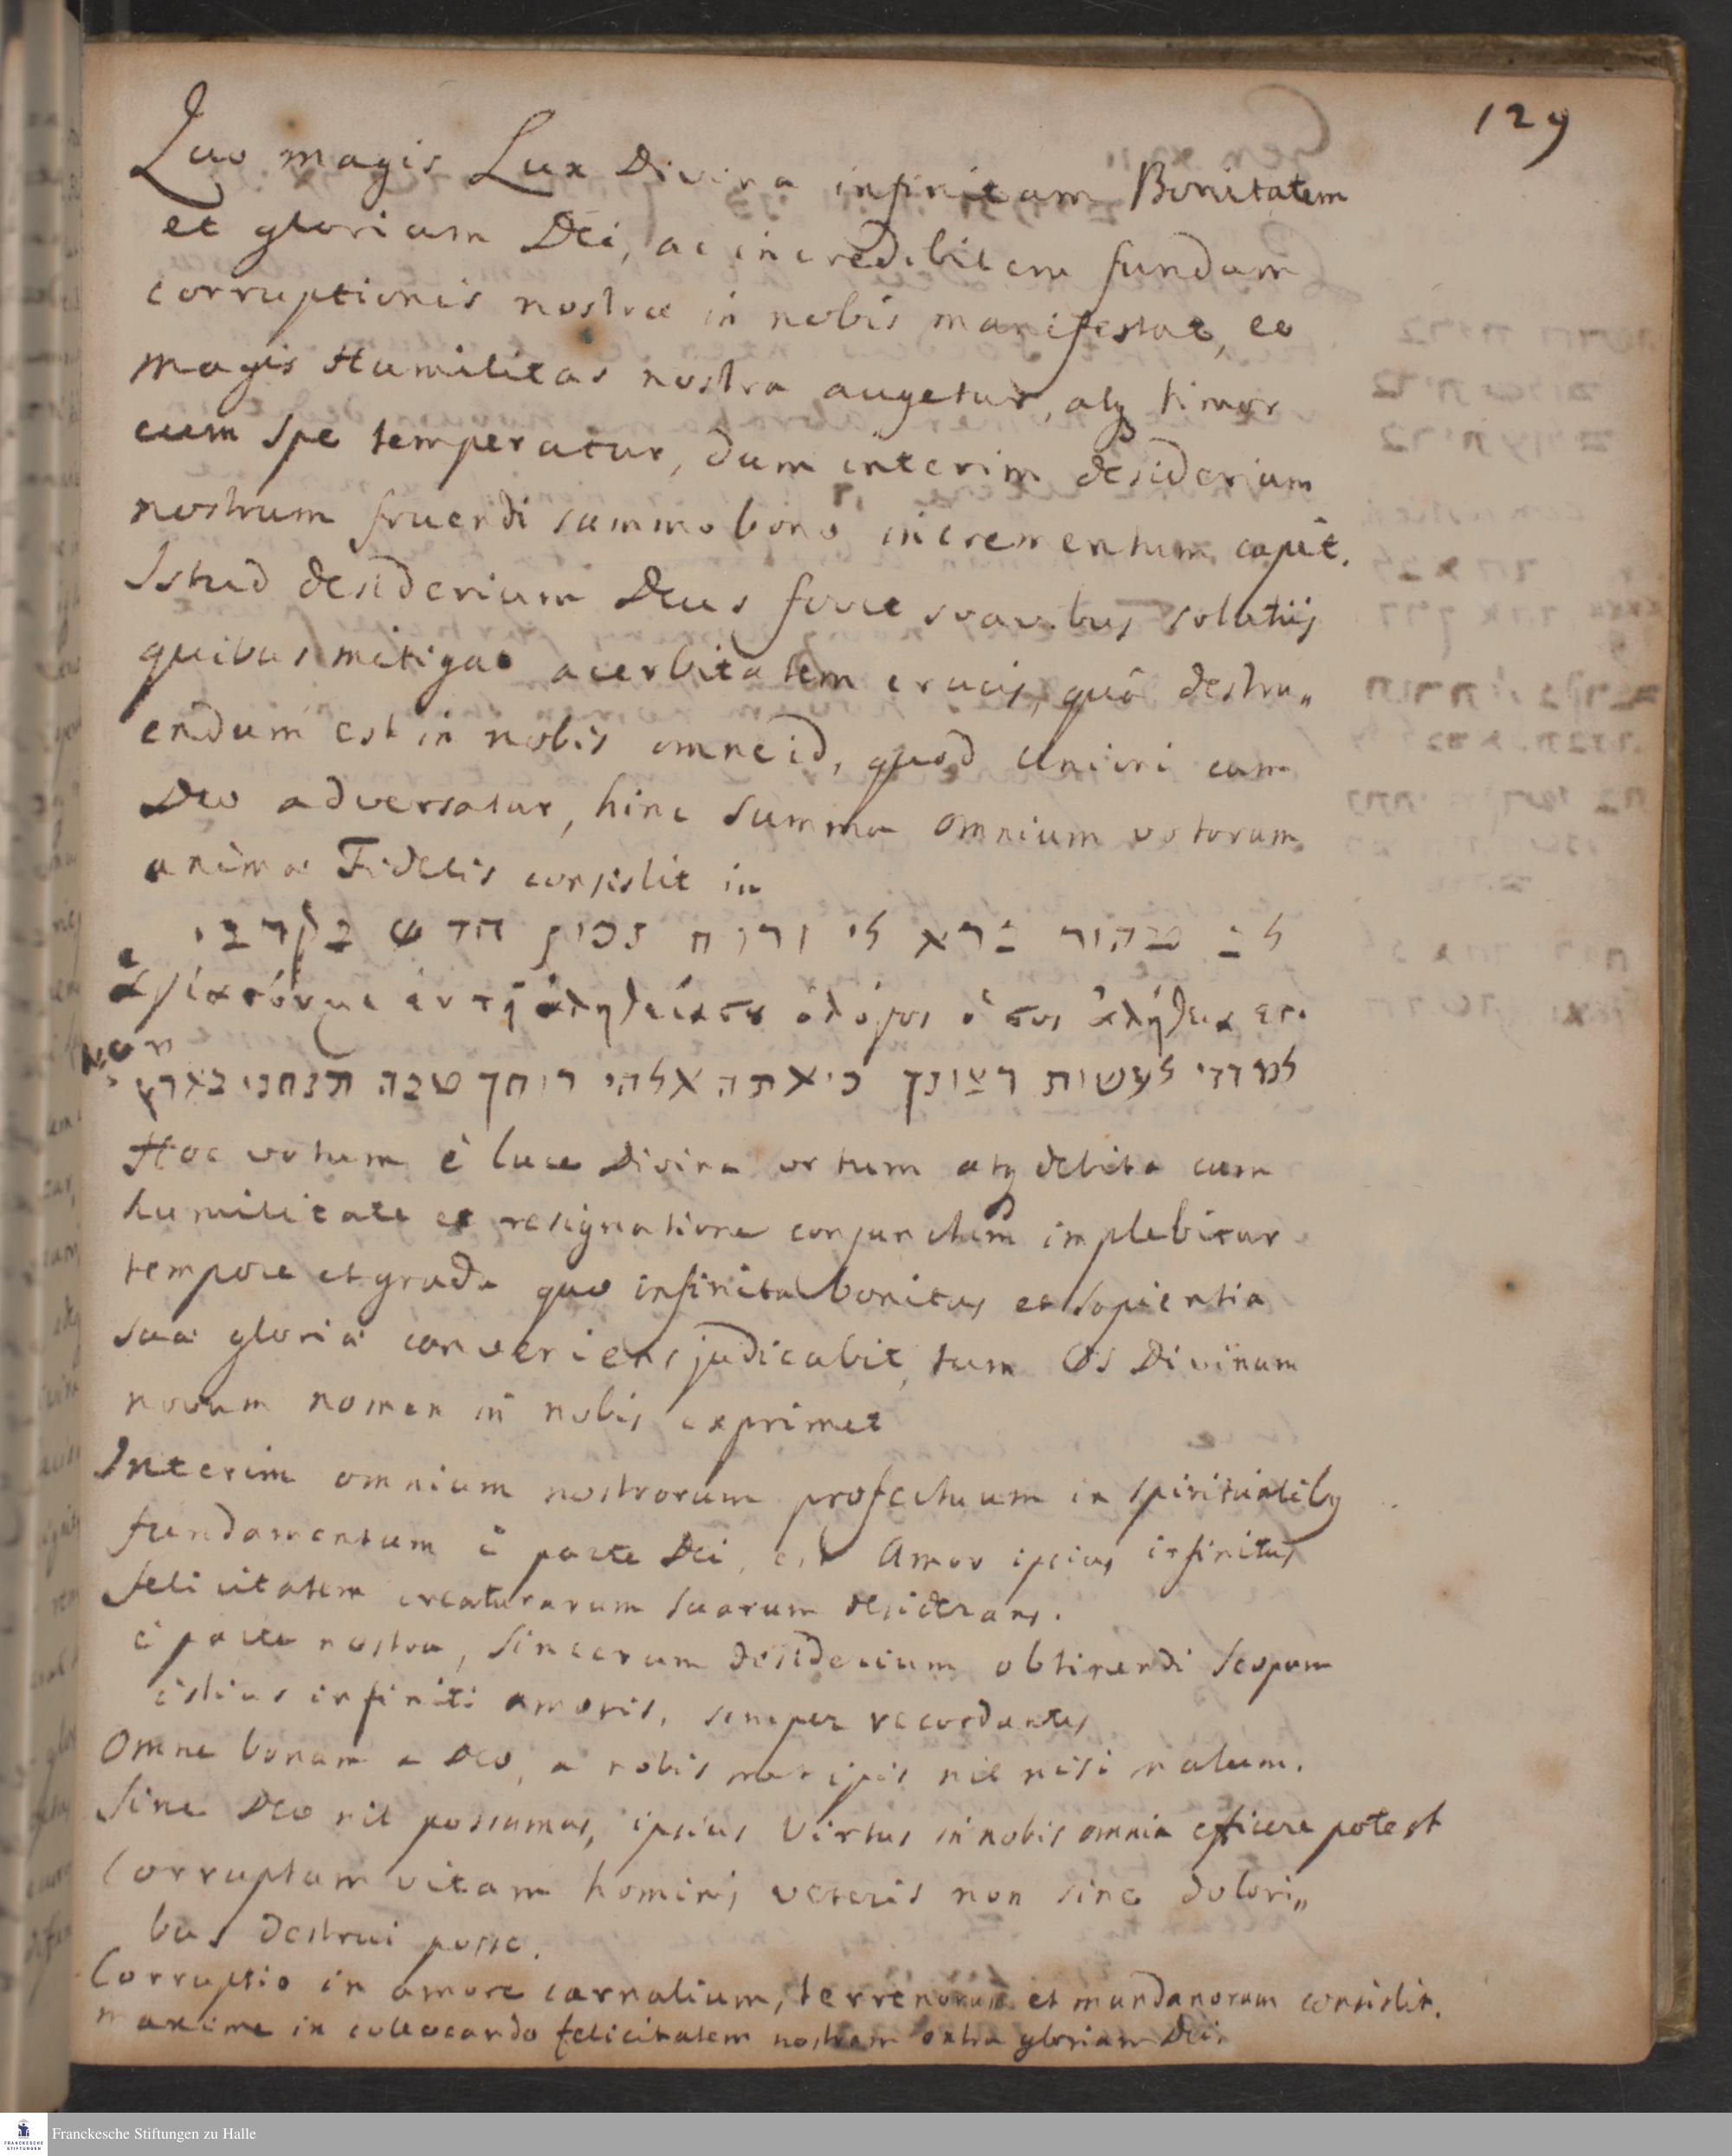 129
Quo magis Lux Divina infinitam Bonitatem
et gloriam Dei, ac incredibilem fundum
corruptionis nostræ in nobis manifestat, eo
magis Humilitas nostra augetur, atq timor
cum spe temperatur, dum interim desiderium
nostrum fruendi summo bono incrementum capit.
Istud desiderium Deus fovet suavibus solatiis
quibus mitigat acerbitatem crucis, quâ destru„
endum est in nobis omne id, quod Uniri cum
Deo adversatur, hinc summa omnium votorum
animæ Fidelis consistit in
לב טהור ברא לי ורוח נכון חדש בקרבי
ἁγίασόν με ἐν τῇ ἀληθείᾳ σου ὁ λόγος ὁ σος ἀλήθεια εσ.
למדני לעשות רצונך כי אתה אלהי רוחך טבה תנחני בארץ
Hoc votum è luce Divina ortum atq debita cum
humilitate et resignatione conjunctum implebitur
tempore et gradu quo infinita bonitas et sapientia
suæ gloriæ conveniens judicabit, tum Os Divinum
novum nomen in nobis exprimet
Interim omnium nostrorum profectuum in spiritualibq
fundamentum è parte Dei, est Amor ipsius infinitus
felicitatem creaturarum suarum desiderans.
è parte nostra, sincerum desiderium obtinendi scopum
istius infiniti amoris, semper recordantes
Omne bonum a Deo, a nobis ipsis nil nisi malum.
Sine Deo nil possumus, ipsius Virtus in nobis omnia efficere potest
Corruptam vitam hominis veteris non sine dolori„
bus destrui posse.
Corruptio in amore carnalium, terrenorum et mundanorum consistit.
maxime in collocando felicitatem nostram extra gloriam Dei.
Franckesche Stiftungen zu Halle
FRANCKESCHE
STIFTUNGEN